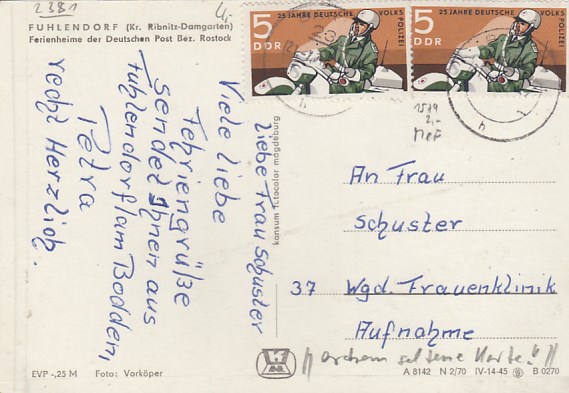 2381
4,-
FUHLENDORF (Kr. Ribnitz-Damgarten)
Ferienheime der Deutschen Post Bez. Rostock
5 25 JAHRE DEUTSCHE VOLKS
POLIZEI
DDR
5 25 JAHRE DEUTSCHE VOLKS
POLIZEI
DDR
Liebe Frau Schuster
Viele liebe
Fehriengrüße
sendet Ihnen aus
Fuhlendorf am Bodden,
Petra
recht Herzlich.
konsum fotocolor magdeburg
1579
2,-
MeF
An Frau
Schuster
37 Wgd. Frauenklinik
Aufnahme
seltene Karte!
EVP -,25 M Foto: Vorköper
A 8142 N 2/70 IV-14-45 B 0270